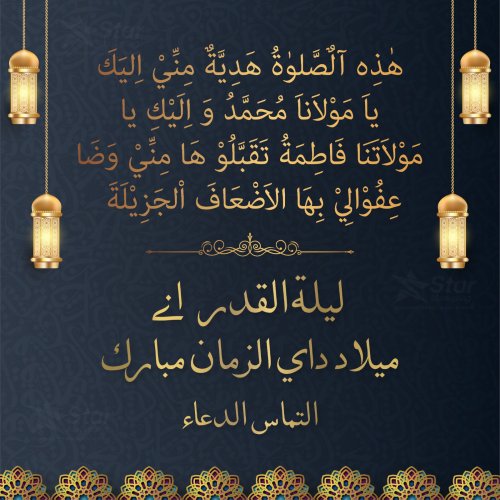 هٰذِه آلٌصَّلوٰةُ هَدِيَّةٌ مِنِّيْ اِليَكَ
ياَ مَوْلَاناَ مُحَمَّدُ وَ اِلَيْكِ يا
مَوْلَاتَنا فَاطِمَةُ تَقَبَّلُوْ هَا مِنِّيْ وَضَا
عِفُوْالِيْ بِهَا الاَضْعَافَ اْلجَزِيْلَةَ
ليلة القدر انے
ميلاد داي الزمان مبارك
التماس الدعاء